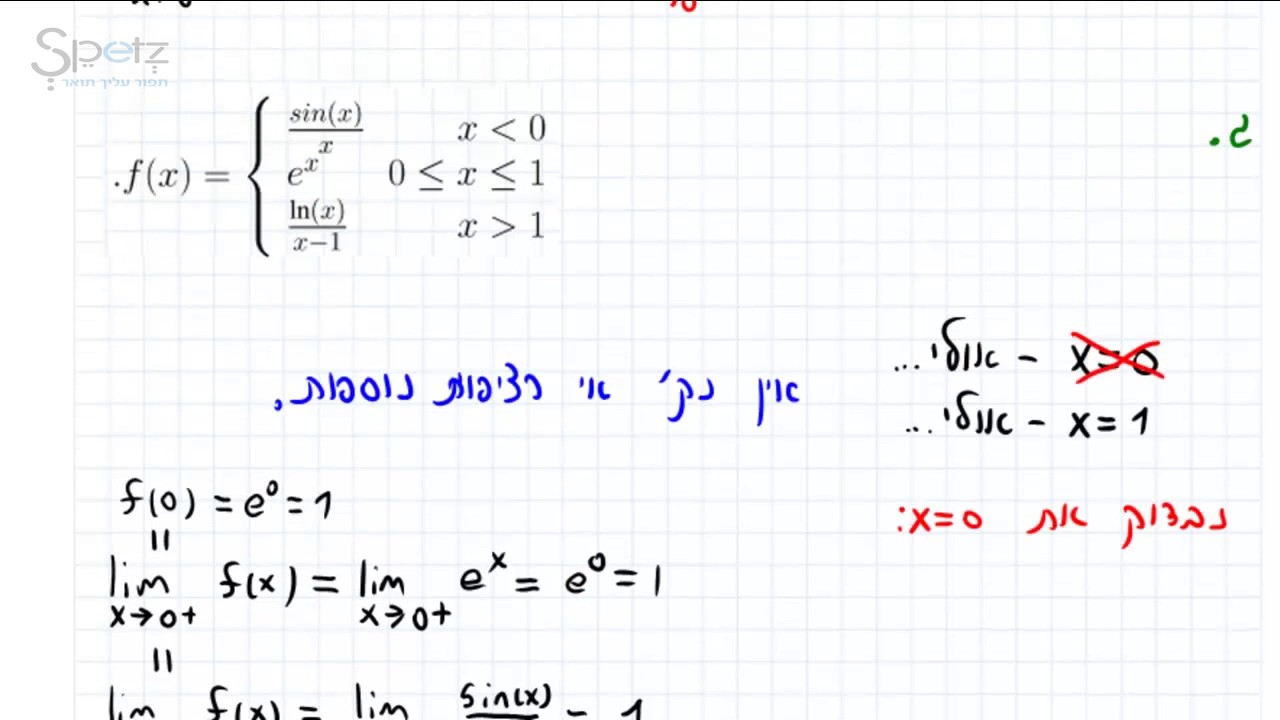 Spetz
תפור עליך תואר
ג.
.f(x) = { sin(x)/x x < 0
e^x 0 ≤ x ≤ 1
ln(x)/(x−1) x > 1
x=0 - אולי...
x=1 - אולי...
אין נק' אי רציפות נוספות.
נבדוק את x=0:
f(0) = e^0 = 1
||
lim x→0+ f(x) = lim x→0+ e^x = e^0 = 1
||
lim f(x) = lim sin(x) = 1